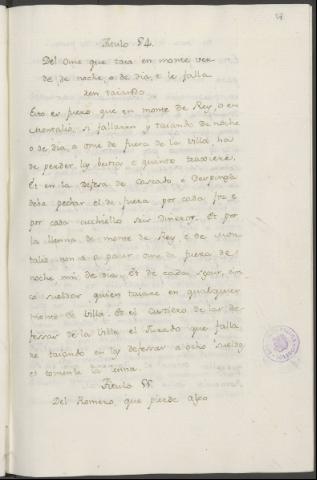 Titulo 54.
Del ome que taia en monte ver
de de noche, o de dia, e le falla
ren taiando.
Esto es fuero que en monte de Rey, o en
si fallaren y taiando de noche
o de dia, a ome de fuera de la Villa, has
de perder las bestias e quanto trasieren.
Et en la defesa de Cascaxo, e
debe pechar el de fuera, por cada
por cada cuchiello seis Dineros. Et por
la lienna de monte de Rey, e de
non a a ome de fuera de
noche nin de dia. Et de cada
co sueldos quien taiare en qualquier
de Villa. Et el Custiero de las de
fessas de la Villa el Jurado que falla
re taiando en las defessas a ocho sueldos
et la lenna.
Titulo 55.
Del Romero, que pierde algo